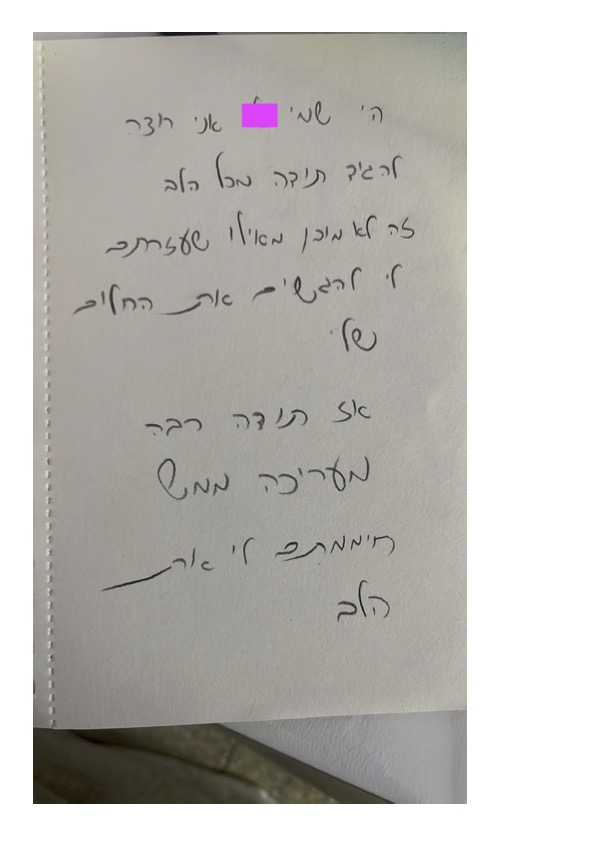 הי שמי אני רוצה
להגיד תודה מכל הלב
זה לא מובן מאילו שעזרתם
לי להגשים את החלום
שלי
אז תודה רבה
מעריכה ממש
חיממתם לי את
הלב